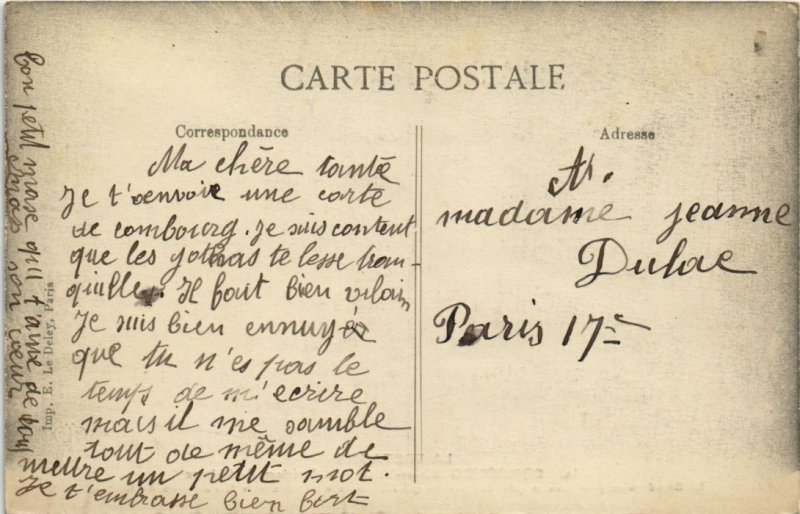 CARTE POSTALE
Correspondance
Adresse
Ma chère tante
Je t'envoie une carte
de combourg. Je suis content
que les te lesse tran-
quille. Il fait bien vilain
Je suis bien ennuyée
que tu n'es pas le
temps de m'ecrire
mais il me samble
tout de même de
mettre un petit mot.
Je t'embrasse bien fort
ton petit qui t'aime de
son coeur
A.
madame jeanne
Dulac
Paris 17e
Imp. E. Le Deley, Paris